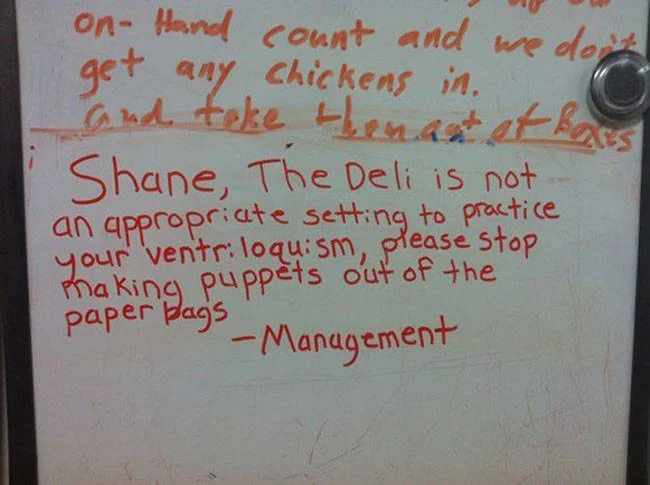 on-Hand count and we don't
get any chickens in.
and take them out of Boxes
Shane, The Deli is not
an appropriate setting to practice
your ventriloquism, please stop
making puppets out of the
paper bags
-Management